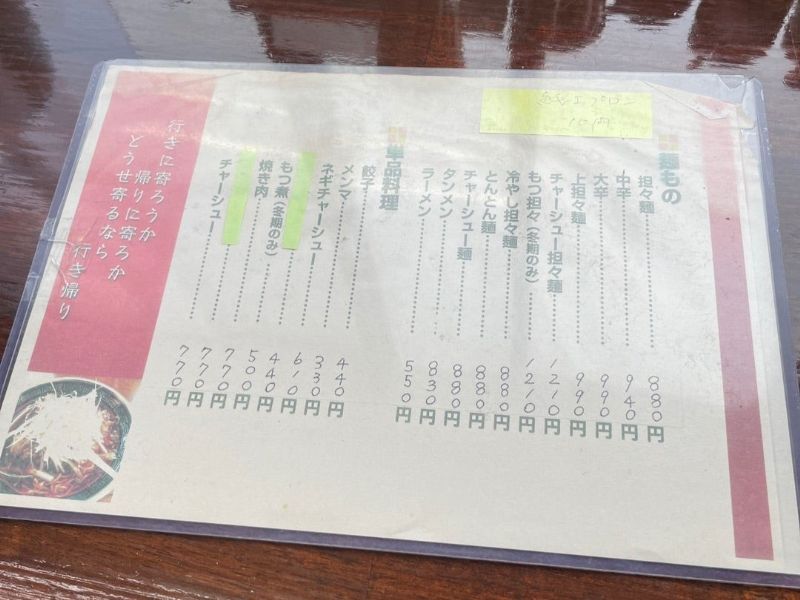 紙エプロン
10円
麺もの
担々麺 880円
中辛 940円
大辛 990円
上担々麺 990円
チャーシュー担々麺 1210円
もつ担々(冬期のみ) 1210円
冷やし担々麺 880円
とんとん麺 880円
チャーシュー麺 880円
タンメン 830円
ラーメン 550円
単品料理
餃子 440円
メンマ 330円
ネギチャーシュー 610円
440円
もつ煮(冬期のみ) 500円
焼き肉 770円
770円
チャーシュー 770円
行きに寄ろうか
帰りに寄ろか
どうせ寄るなら
行き帰り